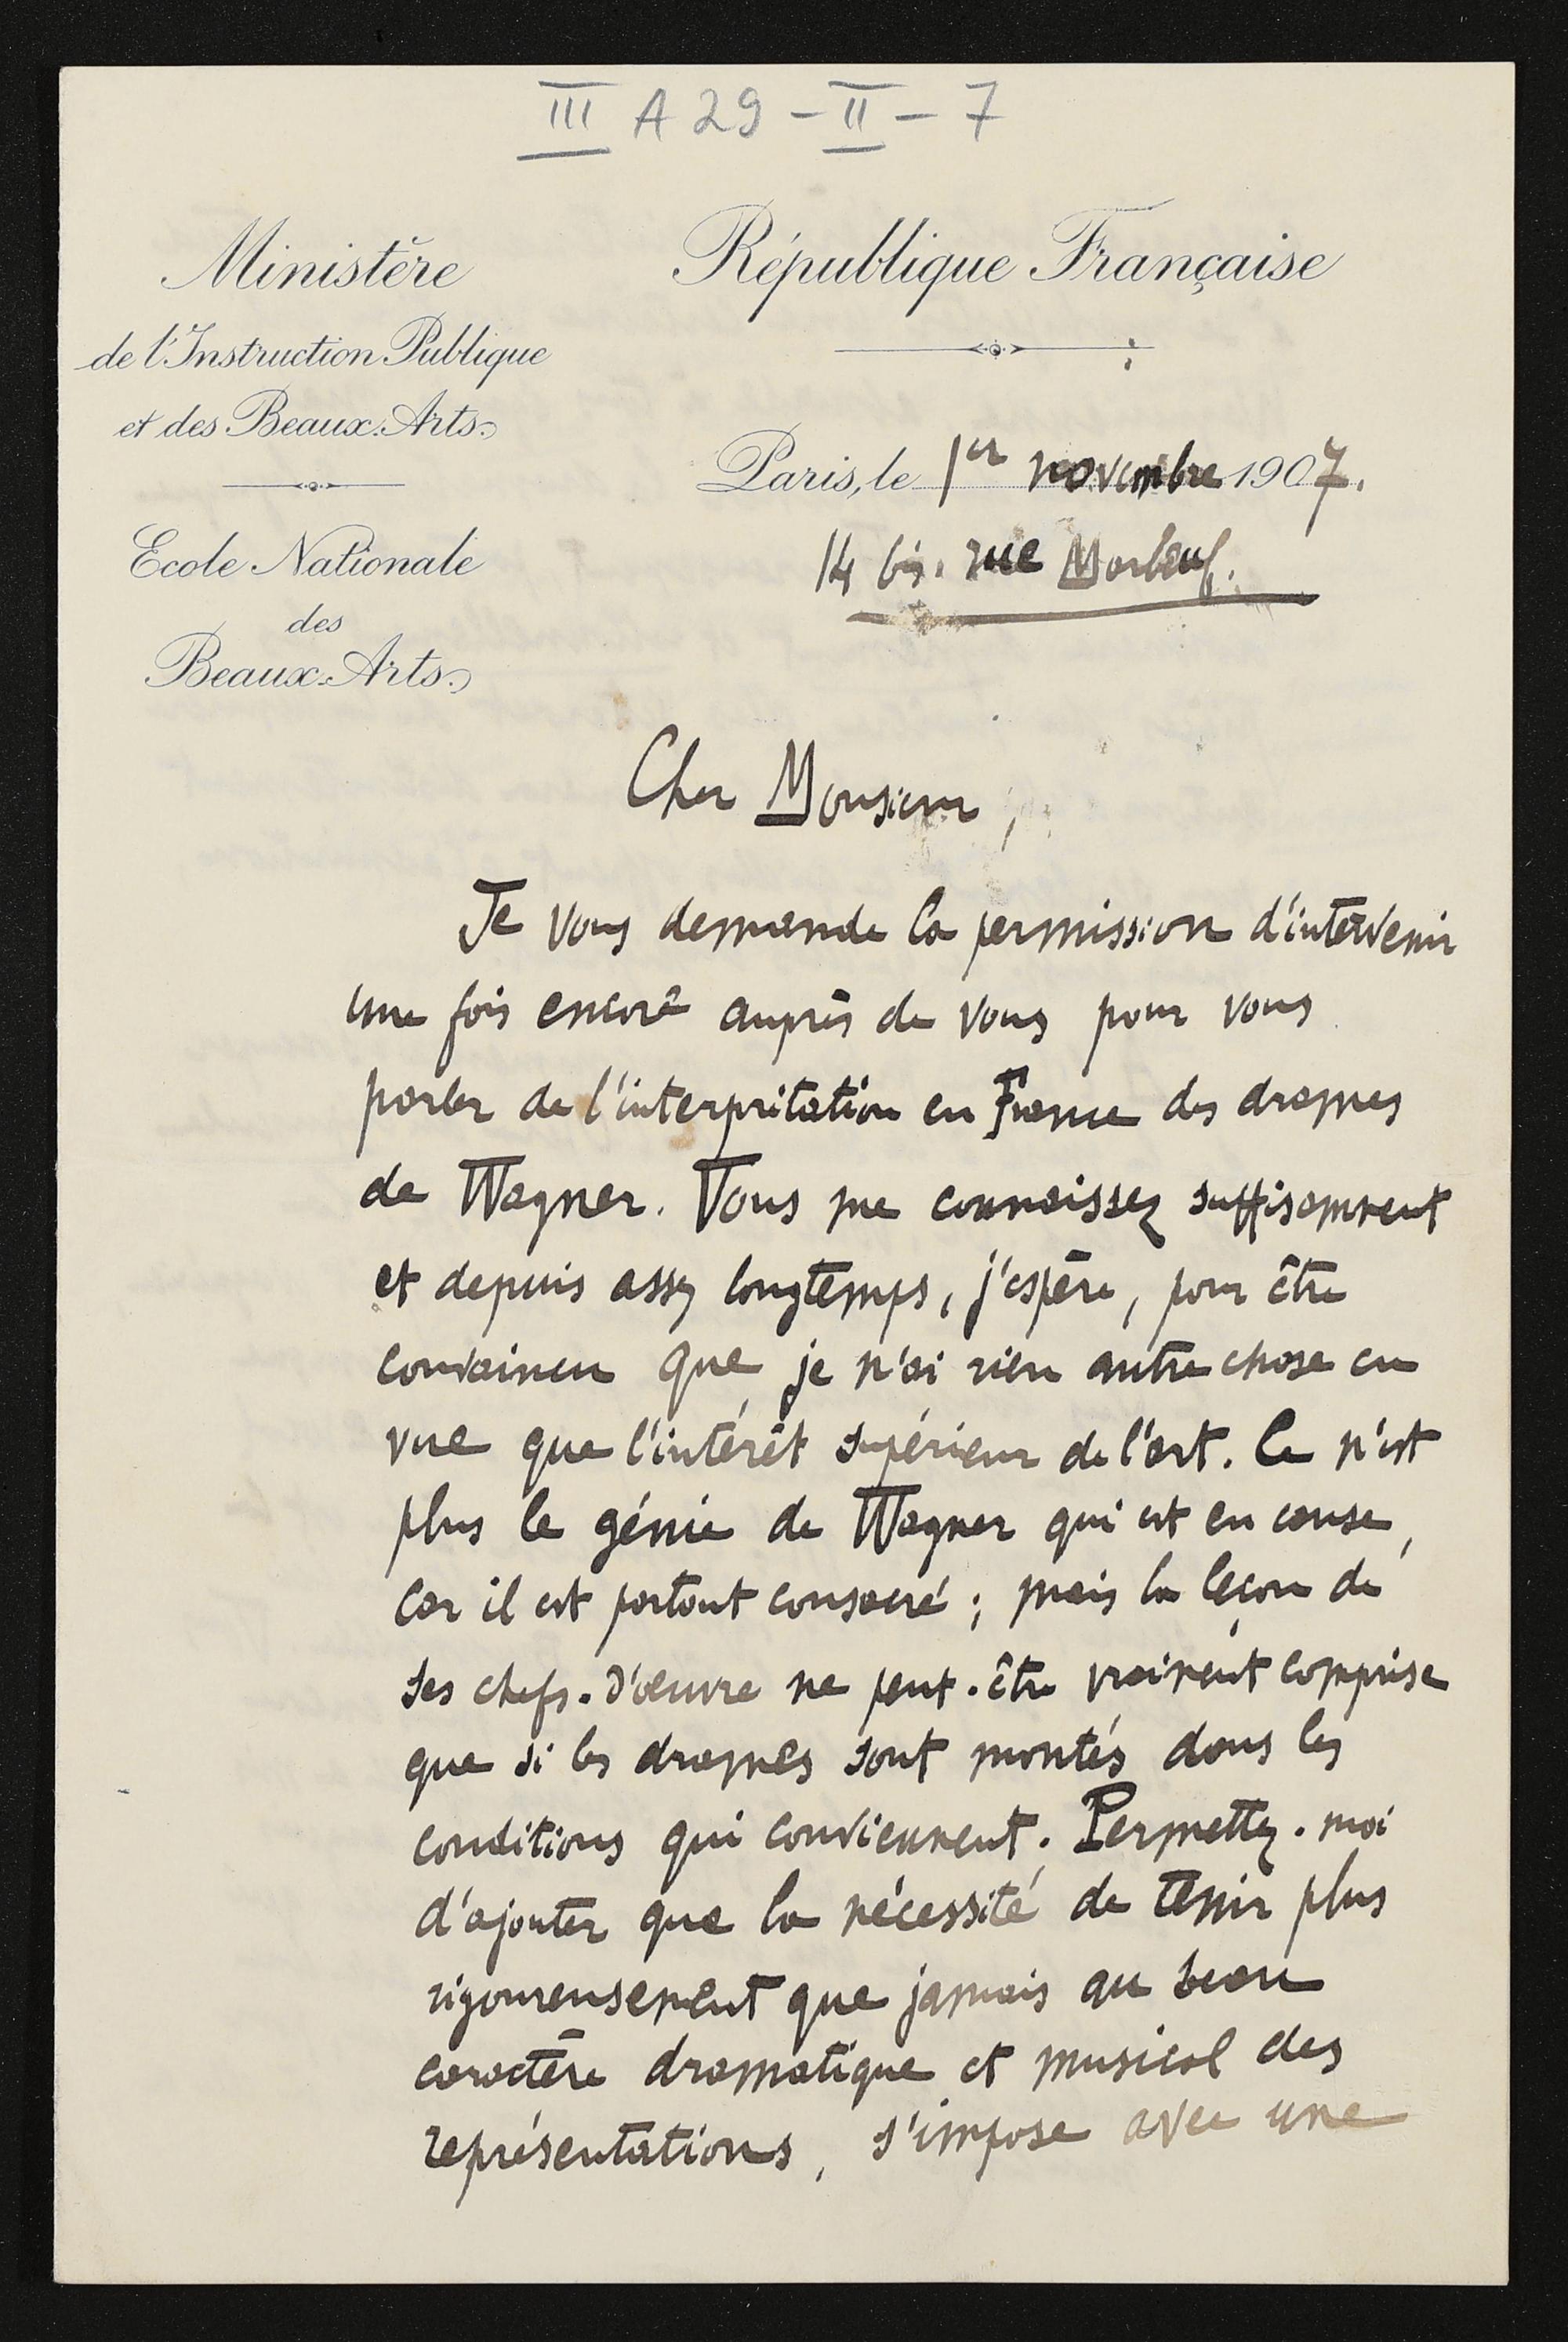 III A 29 - II - 7
Ministère
de l'Instruction Publique
et des Beaux-Arts
Ecole Nationale
des
Beaux-Arts
République Française
Paris, le 1er novembre 1907.
14 bis. rue Marbeuf.
Cher Monsieur,
Je vous demande la permission d'intervenir
une fois encore auprès de vous pour vous
parler de l'interprétation en France des drames
de Wagner. Vous me connaissez suffisamment
et depuis assez longtemps, j'espère, pour être
convaincu que je n'ai rien autre chose en
vue que l'intérêt supérieur de l'art. Ce n'est
plus le génie de Wagner qui est en cause,
car il est partout consacré ; mais la leçon de
ses chefs-d'œuvre ne peut-être vraiment comprise
que si les drames sont montés dans les
conditions qui conviennent. Permettez-moi
d'ajouter que la nécessité de tenir plus
rigoureusement que jamais au beau
caractère dramatique et musical des
représentations, s'impose avec une